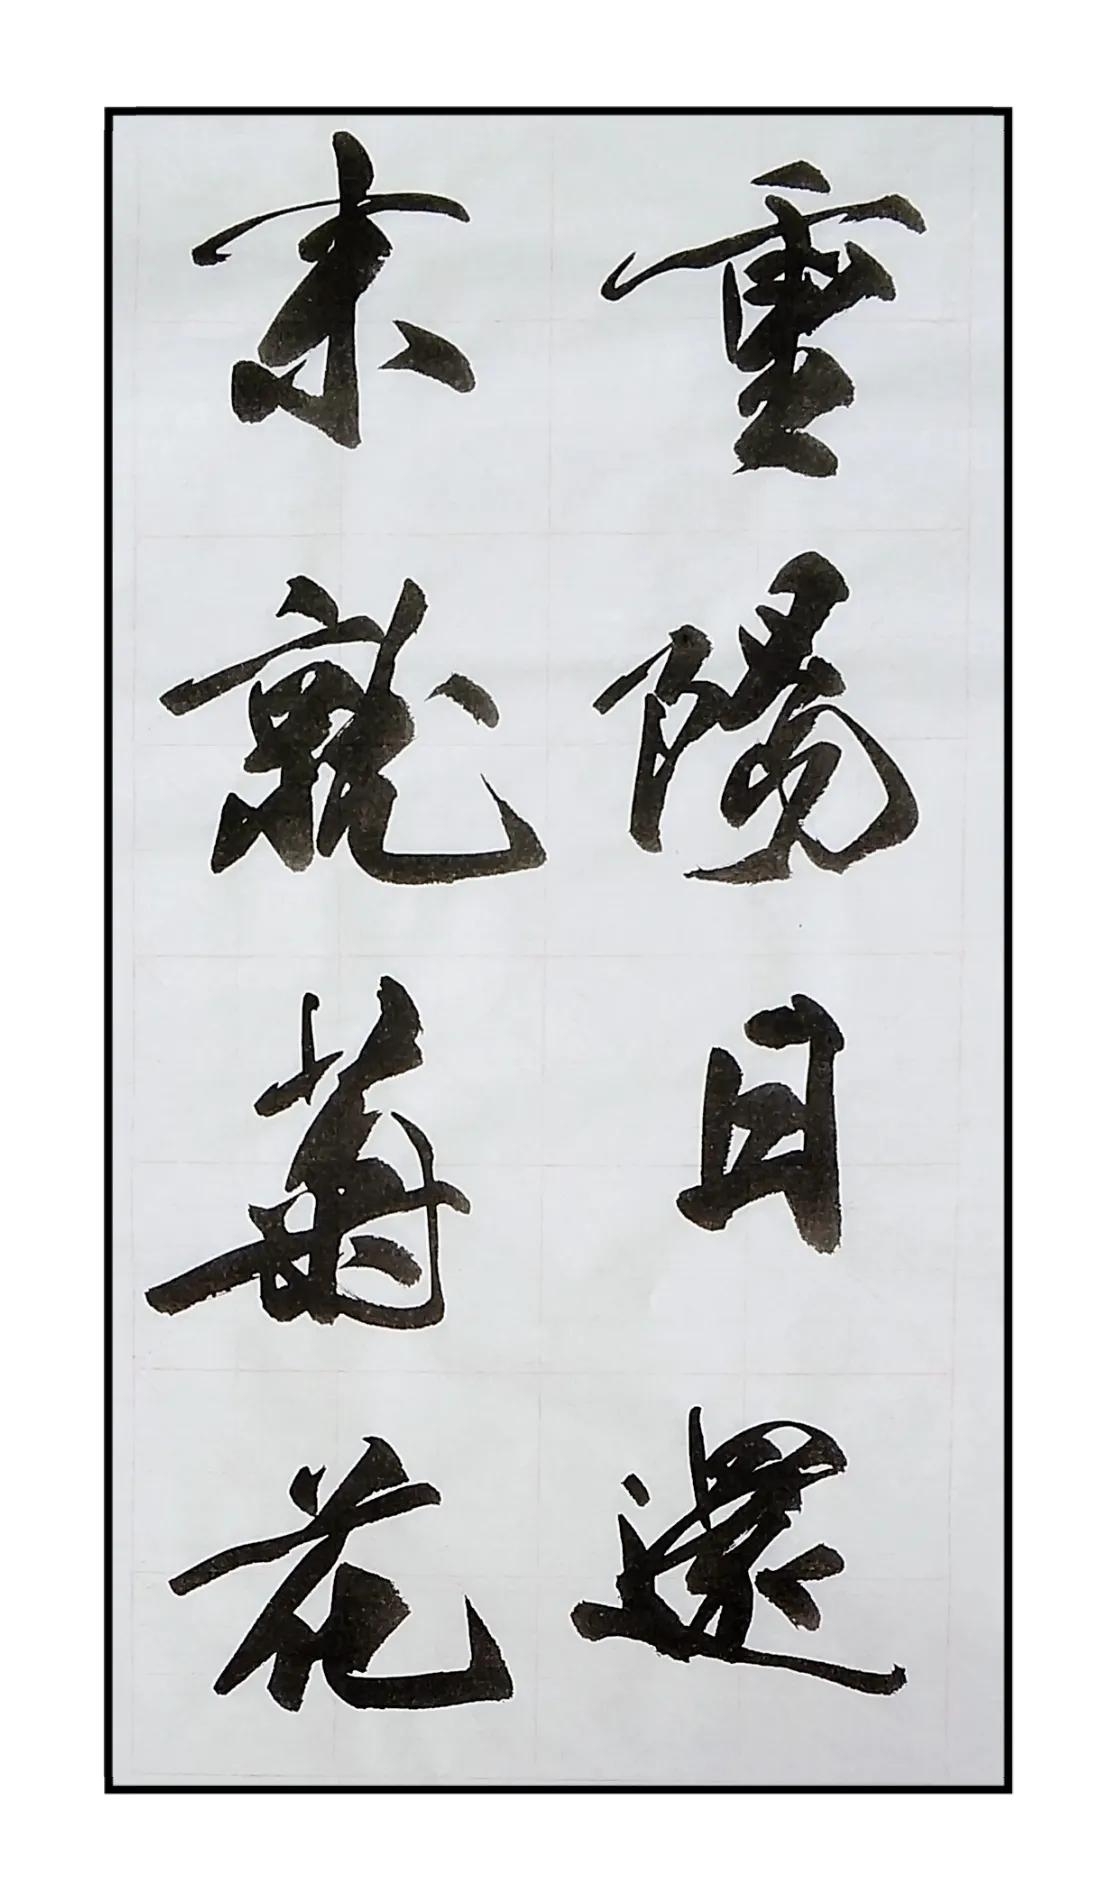 重陽日還
来就菊花